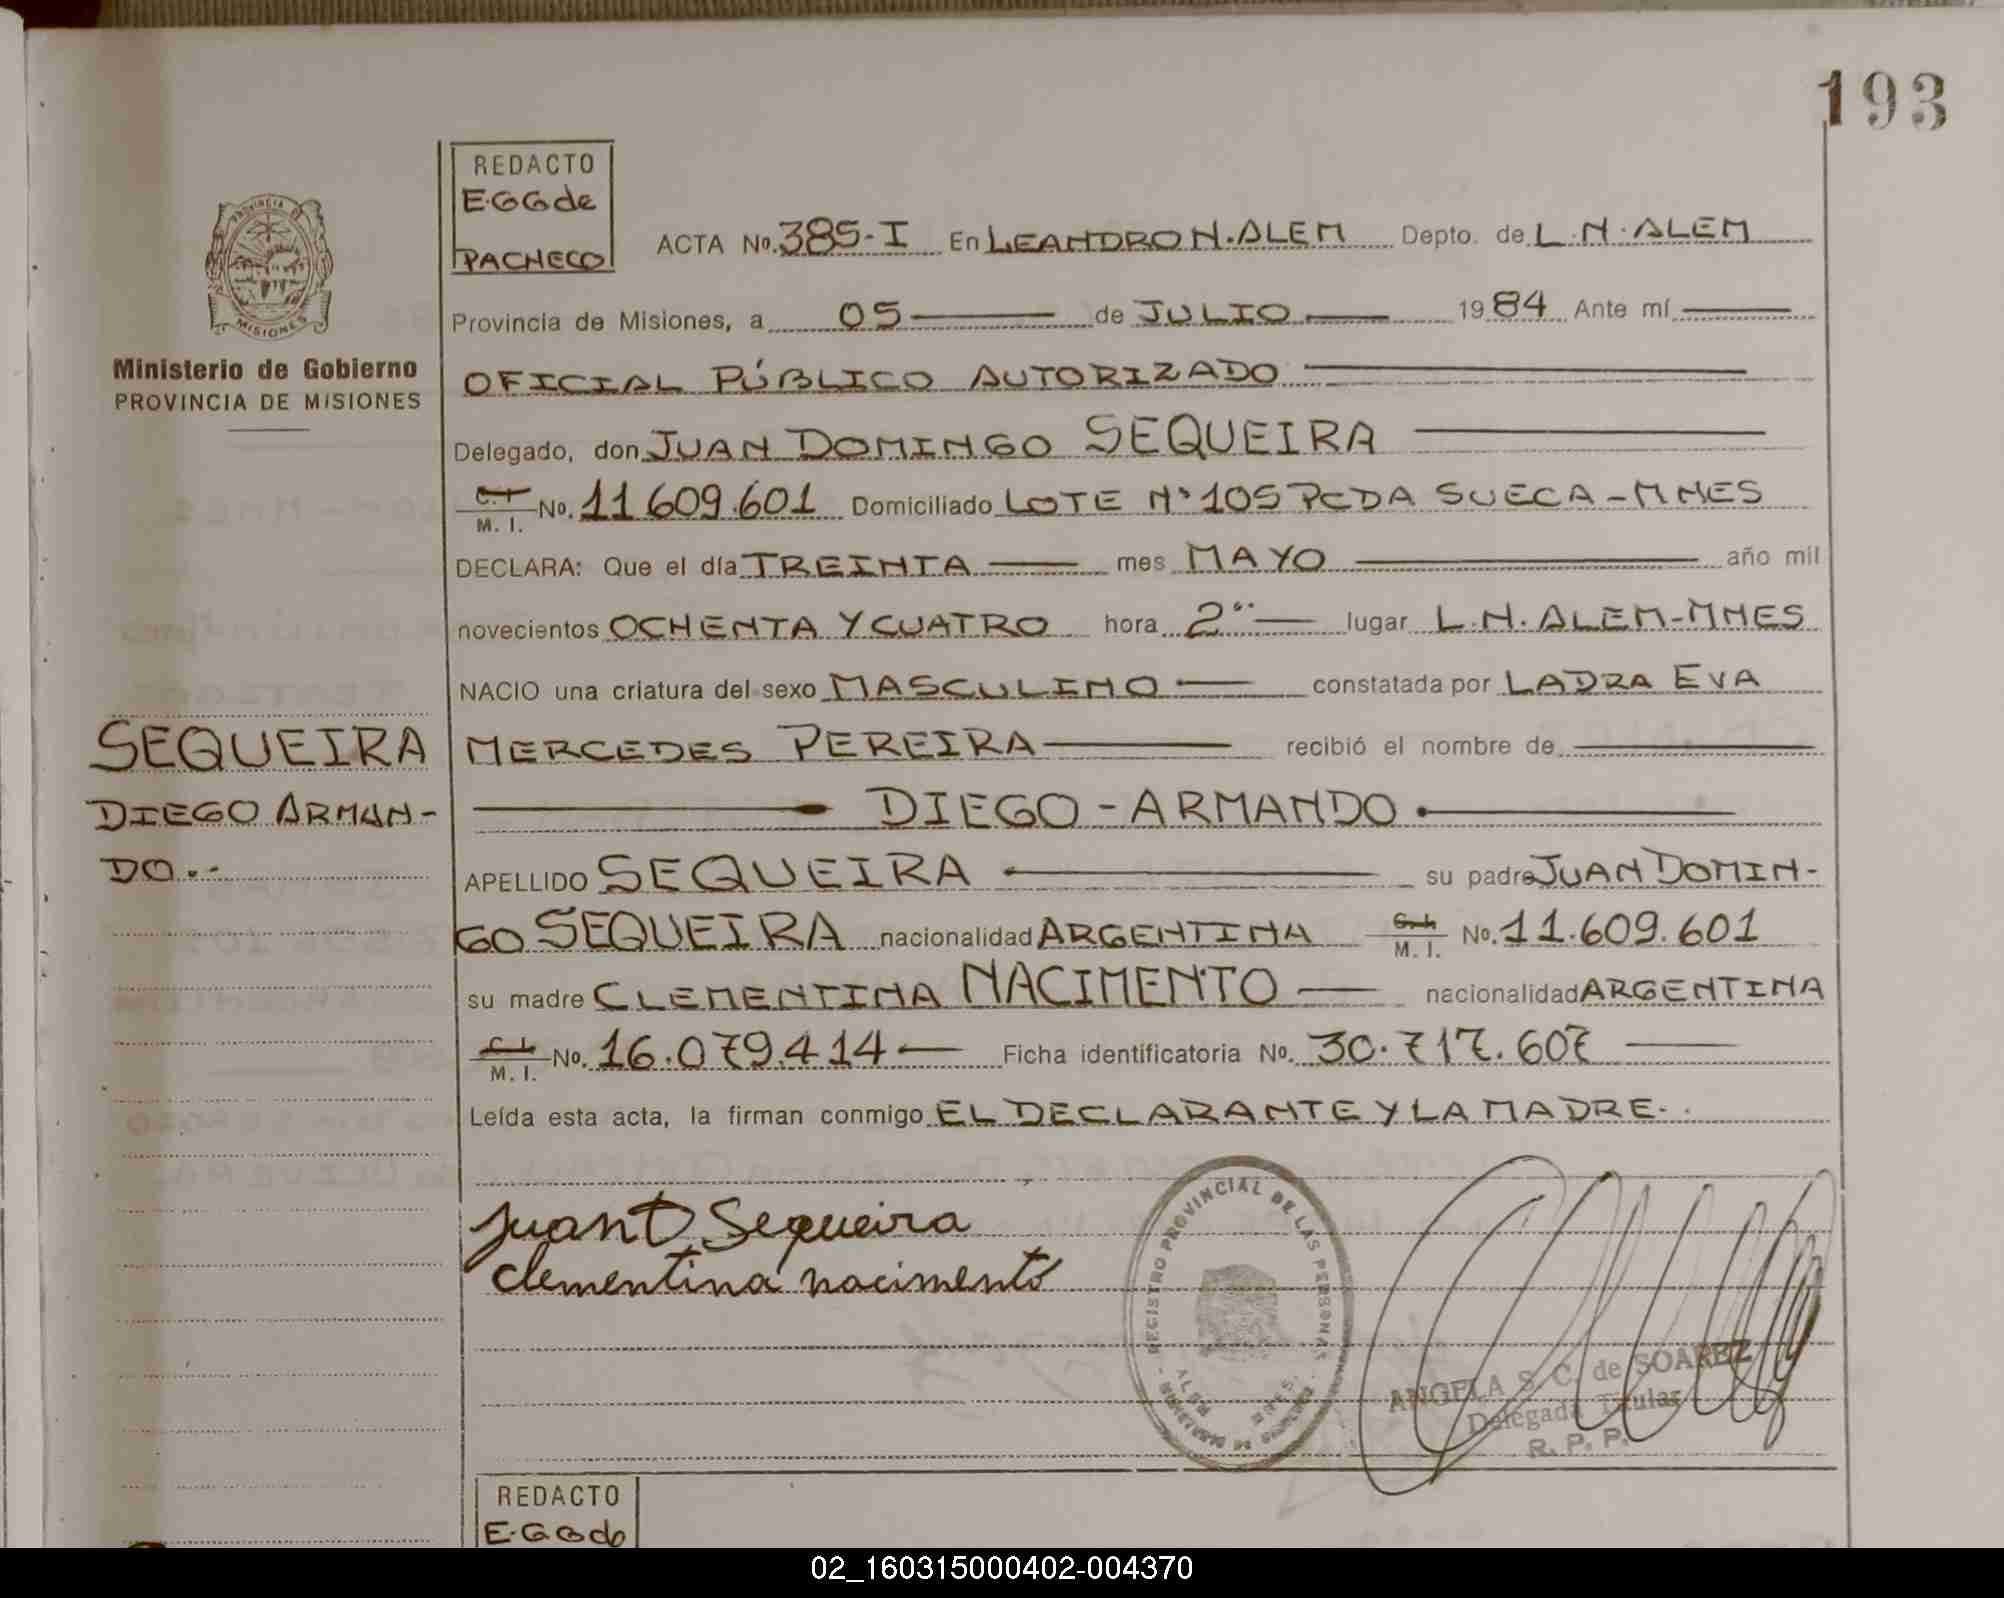 193
REDACTO
E.GG de
PACHECO
PROVINCIA DE
MISIONES
Ministerio de Gobierno
PROVINCIA DE MISIONES
ACTA No. 385-I En LEANDRO N. ALEM Depto. de L. N. ALEM
Provincia de Misiones, a 05 de JULIO 1984 Ante mí
OFICIAL PÚBLICO AUTORIZADO
Delegado, don JUAN DOMINGO SEQUEIRA
C. I. M. I. No. 11 609.601 Domiciliado LOTE N° 105 PCDA SUECA - MNES
DECLARA: Que el día TREINTA mes MAYO año mil
novecientos OCHENTA Y CUATRO hora 2 lugar L. N. ALEM - MNES
NACIO una criatura del sexo MASCULINO constatada por LADRA EVA
SEQUEIRA
DIEGO ARMAN-
DO.-
MERCEDES PEREIRA recibió el nombre de
DIEGO - ARMANDO
APELLIDO SEQUEIRA su padre JUAN DOMIN-
GO SEQUEIRA nacionalidad ARGENTINA C. I. M. I. No. 11.609.601
su madre CLEMENTINA NACIMENTO nacionalidad ARGENTINA
C. I. M. I. No. 16.079.414 Ficha identificatoria No. 30.717.607
Leída esta acta, la firman conmigo EL DECLARANTE Y LA MADRE.
Juan D Sequeira
clementina nacimento
REGISTRO PROVINCIAL DE LAS PERSONAS
ANGELA S. C. de SOAREZ
Delegada Titular
R. P. P.
REDACTO
E.GG de
02_160315000402-004370